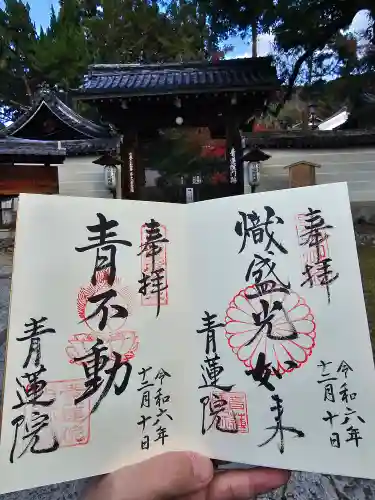 青蓮院門跡
奉拝
熾盛光如来
青蓮院
令和六年
十二月十日
奉拝
青不動
青蓮院
令和六年
十二月十日